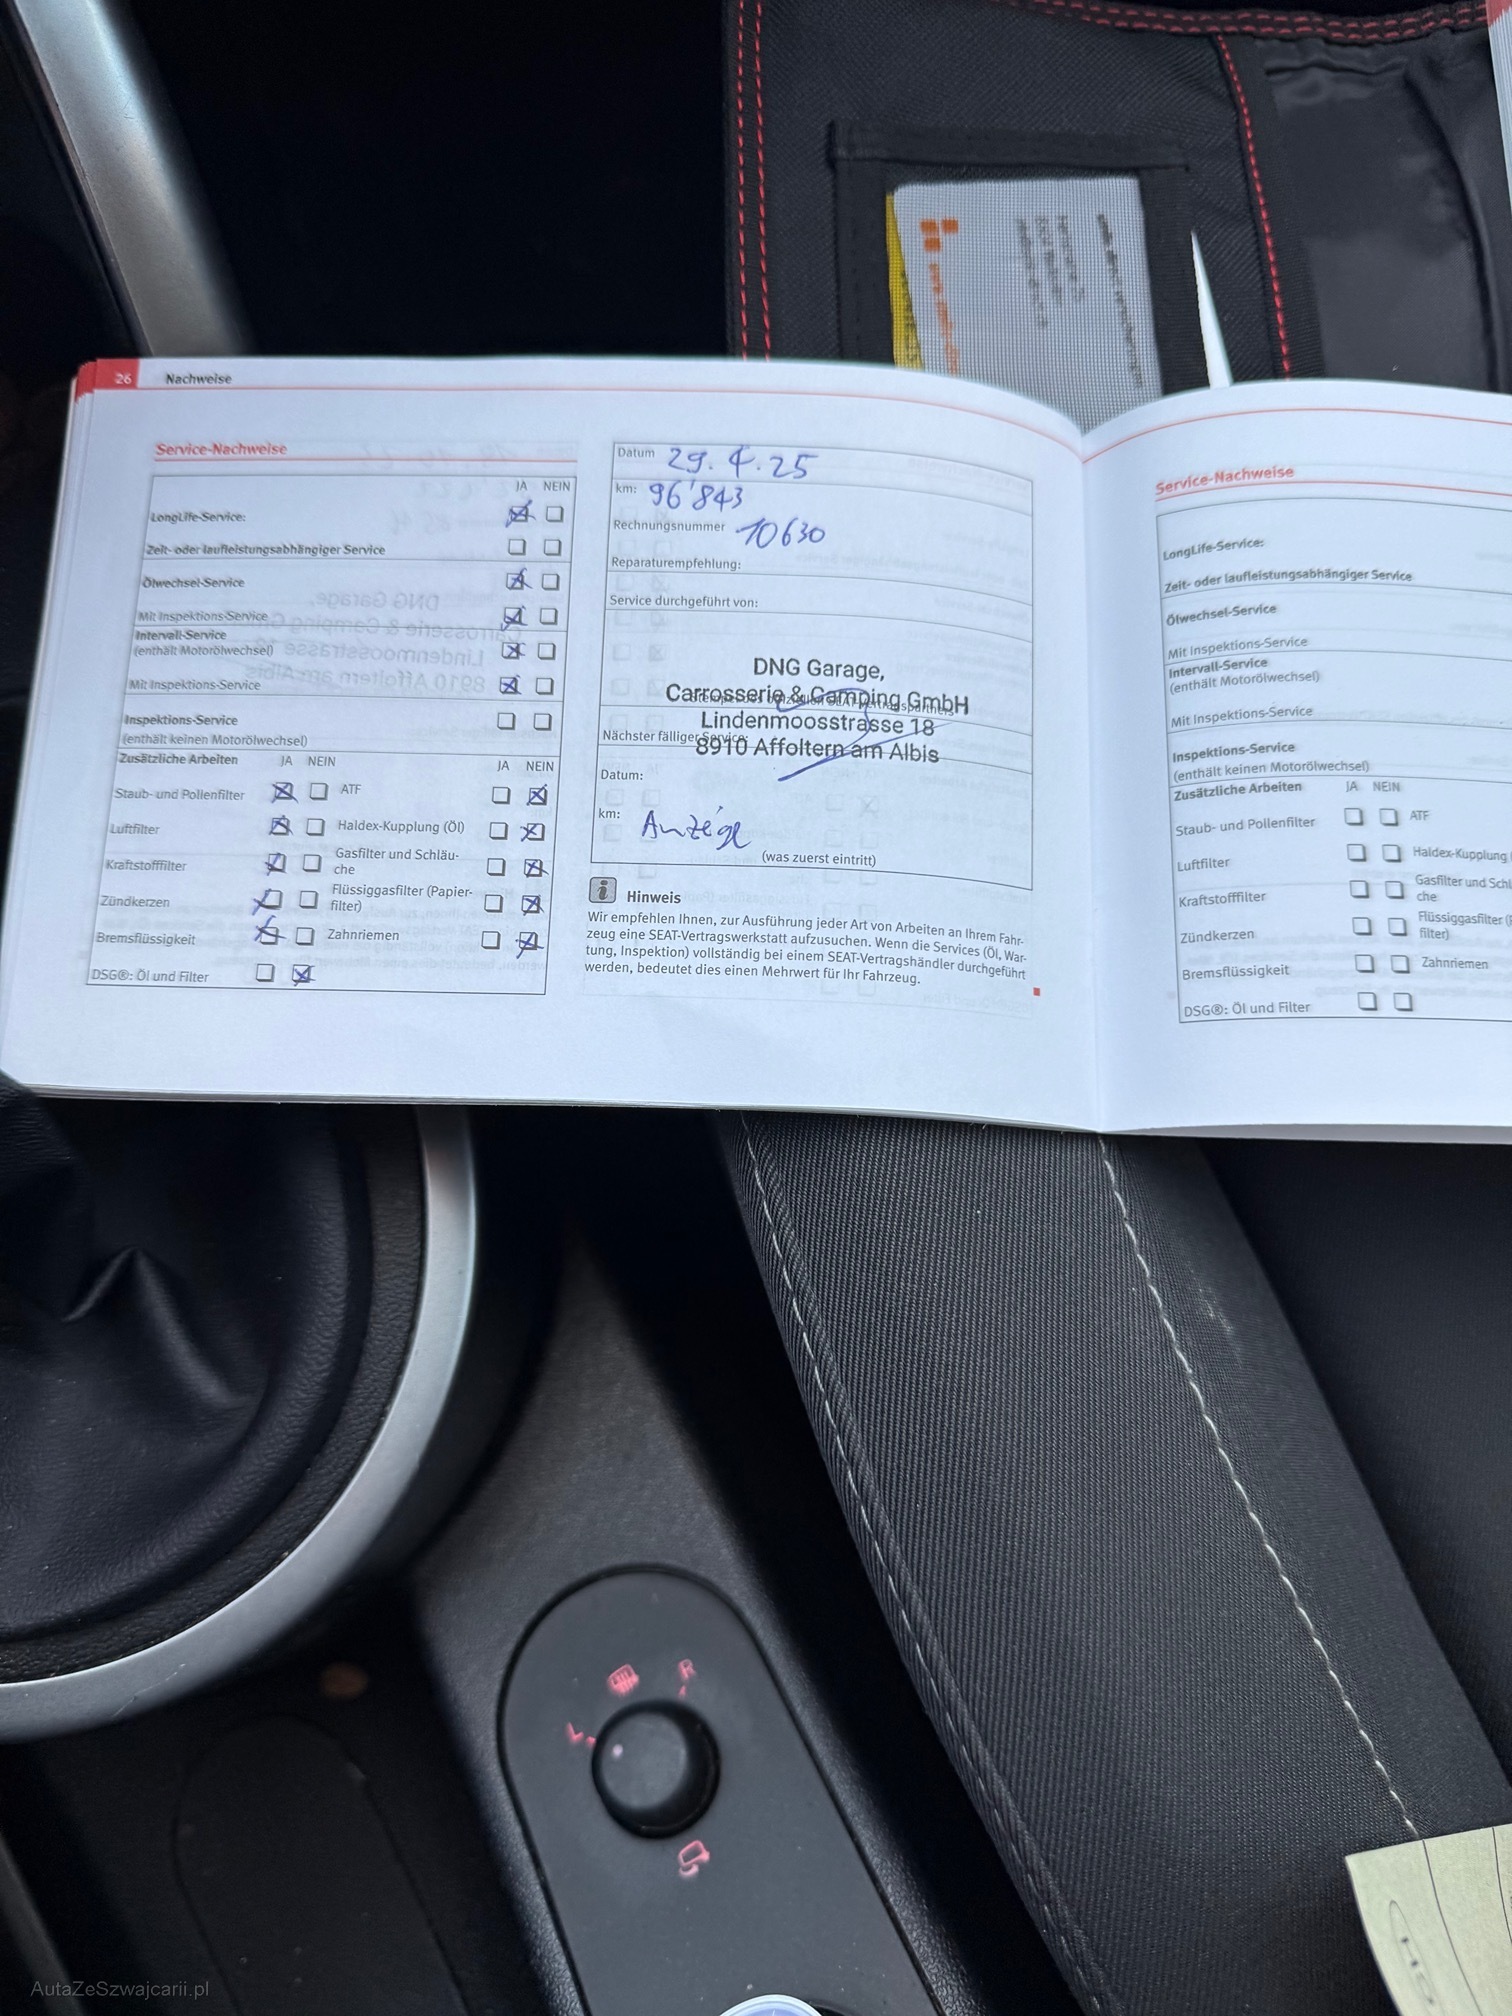 26 Nachweise
Service-Nachweise
JA NEIN
LongLife-Service:
Zeit- oder laufleistungsabhängiger Service
Ölwechsel-Service
Mit Inspektions-Service
Intervall-Service
(enthält Motorölwechsel)
Mit Inspektions-Service
Inspektions-Service
(enthält keinen Motorölwechsel)
Zusätzliche Arbeiten JA NEIN JA NEIN
Staub- und Pollenfilter ATF
Luftfilter Haldex-Kupplung (Öl)
Kraftstofffilter Gasfilter und Schläu-
che
Zündkerzen Flüssiggasfilter (Papier-
filter)
Bremsflüssigkeit Zahnriemen
DSG®: Öl und Filter
Datum 29.4.25
km: 96'843
Rechnungsnummer 10630
Reparaturempfehlung:
Service durchgeführt von:
DNG Garage,
Carrosserie & Camping GmbH
Lindenmoosstrasse 18
8910 Affoltern am Albis
Nächster fälliger Service:
Datum:
km: Anzeige
(was zuerst eintritt)
i Hinweis
Wir empfehlen Ihnen, zur Ausführung jeder Art von Arbeiten an Ihrem Fahr-
zeug eine SEAT-Vertragswerkstatt aufzusuchen. Wenn die Services (Öl, War-
tung, Inspektion) vollständig bei einem SEAT-Vertragshändler durchgeführt
werden, bedeutet dies einen Mehrwert für Ihr Fahrzeug.
Service-Nachweise
LongLife-Service:
Zeit- oder laufleistungsabhängiger Service
Ölwechsel-Service
Mit Inspektions-Service
Intervall-Service
(enthält Motorölwechsel)
Mit Inspektions-Service
Inspektions-Service
(enthält keinen Motorölwechsel)
Zusätzliche Arbeiten JA NEIN
Staub- und Pollenfilter ATF
Luftfilter Haldex-Kupplung
Kraftstofffilter Gasfilter und Schl
che
Zündkerzen Flüssiggasfilter
filter)
Bremsflüssigkeit Zahnriemen
DSG®: Öl und Filter
R
L
AutaZeSzwajcarii.pl